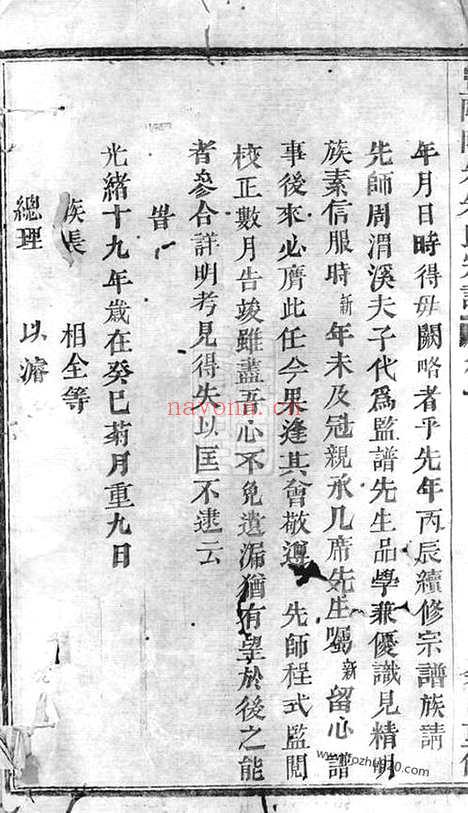 年月日時得毋闕略者乎先年丙辰續修宗譜族請
先師周渭溪夫子代為監譜先生品學兼優識見精明
族素信服時新年未及冠親承几席先生囑新留心譜
事後來必膺此任今果逢其會敬遵 先師程式監閱
校正數月告竣雖盡吾心不免遺漏猶有望於後之能
者參合詳明考見得失以匡不逮云
旹
光緒十九年歲在癸巳菊月重九日
族長 相全等
總理 以濬
navonn.cn
www.fozhu920.com